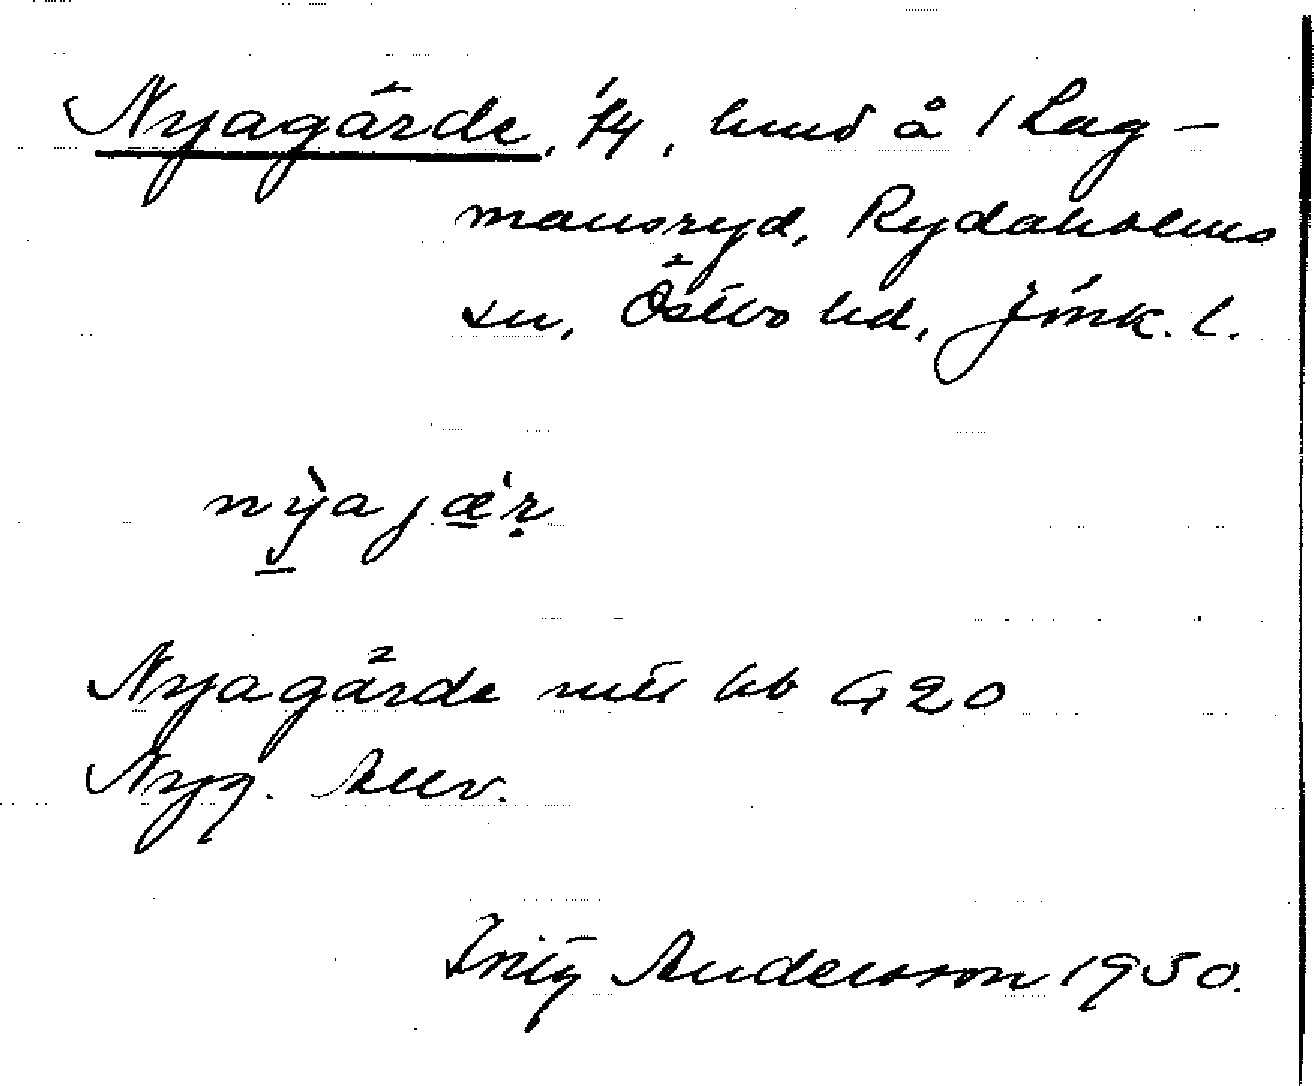 Nyagärde, tp, hmd å 1 Lag-
mansryd, Rydaholms
sn, Östbo hd, Jönk. l.
nỳajæ̱'ṛ
Nyagärde mtl kb G20
Nyg. Allv.
Fritz Andersson 1950.